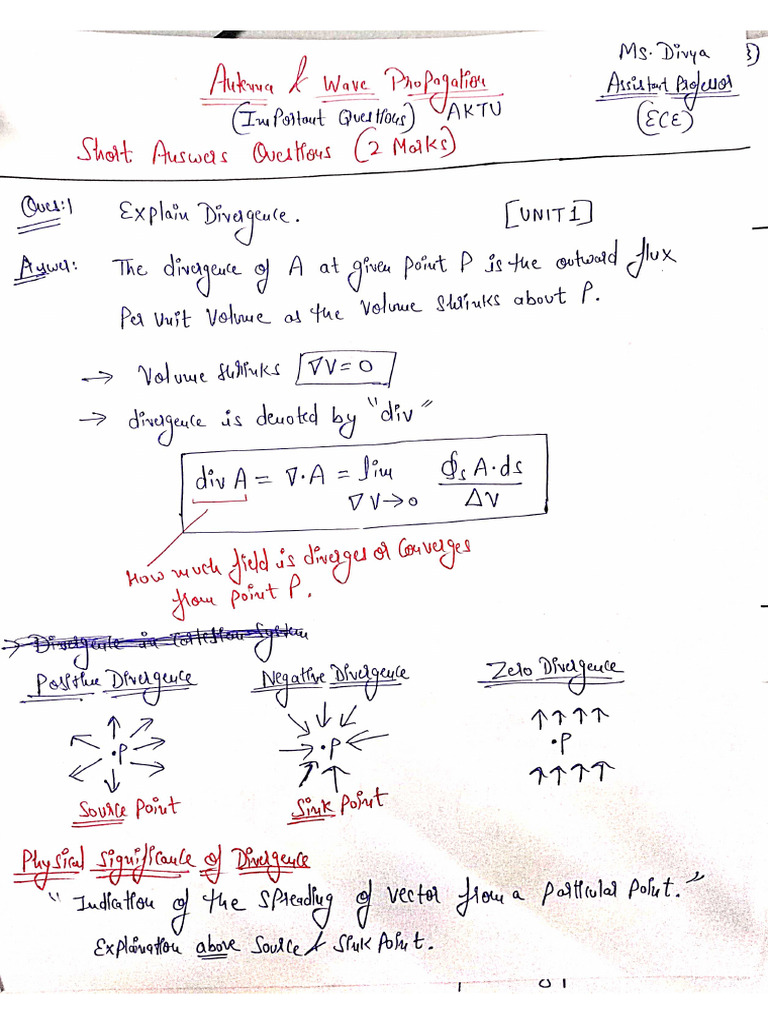 Ms. Divya
Antenna & Wave Propagation
Assistant Professor
(Important Questions) AKTU
(ECE)
Short Answers Questions (2 Marks)
Ques:1 Explain Divergence. [UNIT1]
Answer: The divergence of A at given point P is the outward flux
Per Unit Volume as the Volume shrinks about P.
→ Volume shrinks ∇V=0
→ divergence is denoted by "div"
div A = ∇·A = lim ∮s A·ds
∇V→0 ΔV
How much field is diverges or Converges
from point P.
→ Divergence in System
Positive Divergence Negative Divergence Zero Divergence
·P ·P ·P
Source Point Sink Point
Physical Significance of Divergence
"Indication of the spreading of vector from a particular point."
Explanation above source & sink point.